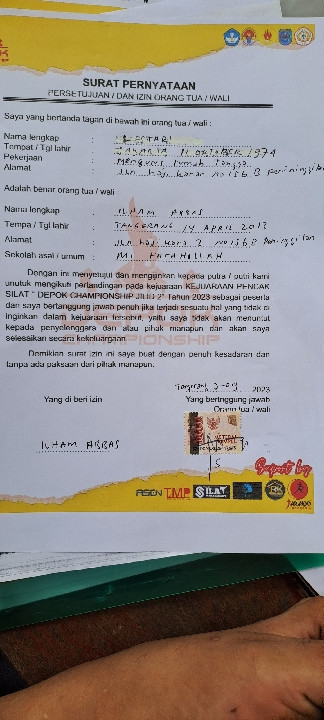 SURAT PERNYATAAN
PERSETUJUAN / DAN IZIN ORANG TUA / WALI
Saya yang bertanda tagan di bawah ini orang tua / wali :
Nama lengkap : LESTARI
Tempat / Tgl lahir : JAKARTA 11 OKTOBER 1974
Pekerjaan : Mengurus rumah tangga
Alamat : Jln haji No 156 B
Adalah benar orang tua / wali :
Nama lengkap : ILHAM ABBAS
Tempa / Tgl lahir : TANGERANG 14 APRIL 2013
Alamat : Jln haji No 156 B
Sekolah asal / umum : MI FATAHILLAH
Dengan ini menyetujui dan mengijinkan kepada putra / putri kami
unutuk mengikuti pertandingan pada kejuaraan KEJUARAAN PENCAK
SILAT " DEPOK CHAMPIONSHIP JILID 2" Tahun 2023 sebagai peserta
dan saya bertanggung jawab penuh jika terjadi sesuatu hal yang tidak di
inginkan dalam kejuaraan tersebut, yaitu saya tidak akan menuntut
kepada penyelenggara dan atau pihak manapun dan akan saya
selesaikan secara kekeluargaan.
CHAMPIONSHIP
Demikian surat izin ini saya buat dengan penuh kesadaran dan
tanpa ada paksaan dari pihak manapun.
2023
Yang di beri izin
Yang bertnggung jawab
Orang tua / wali
ILHAM ABBAS
Support by
TMP SILAT